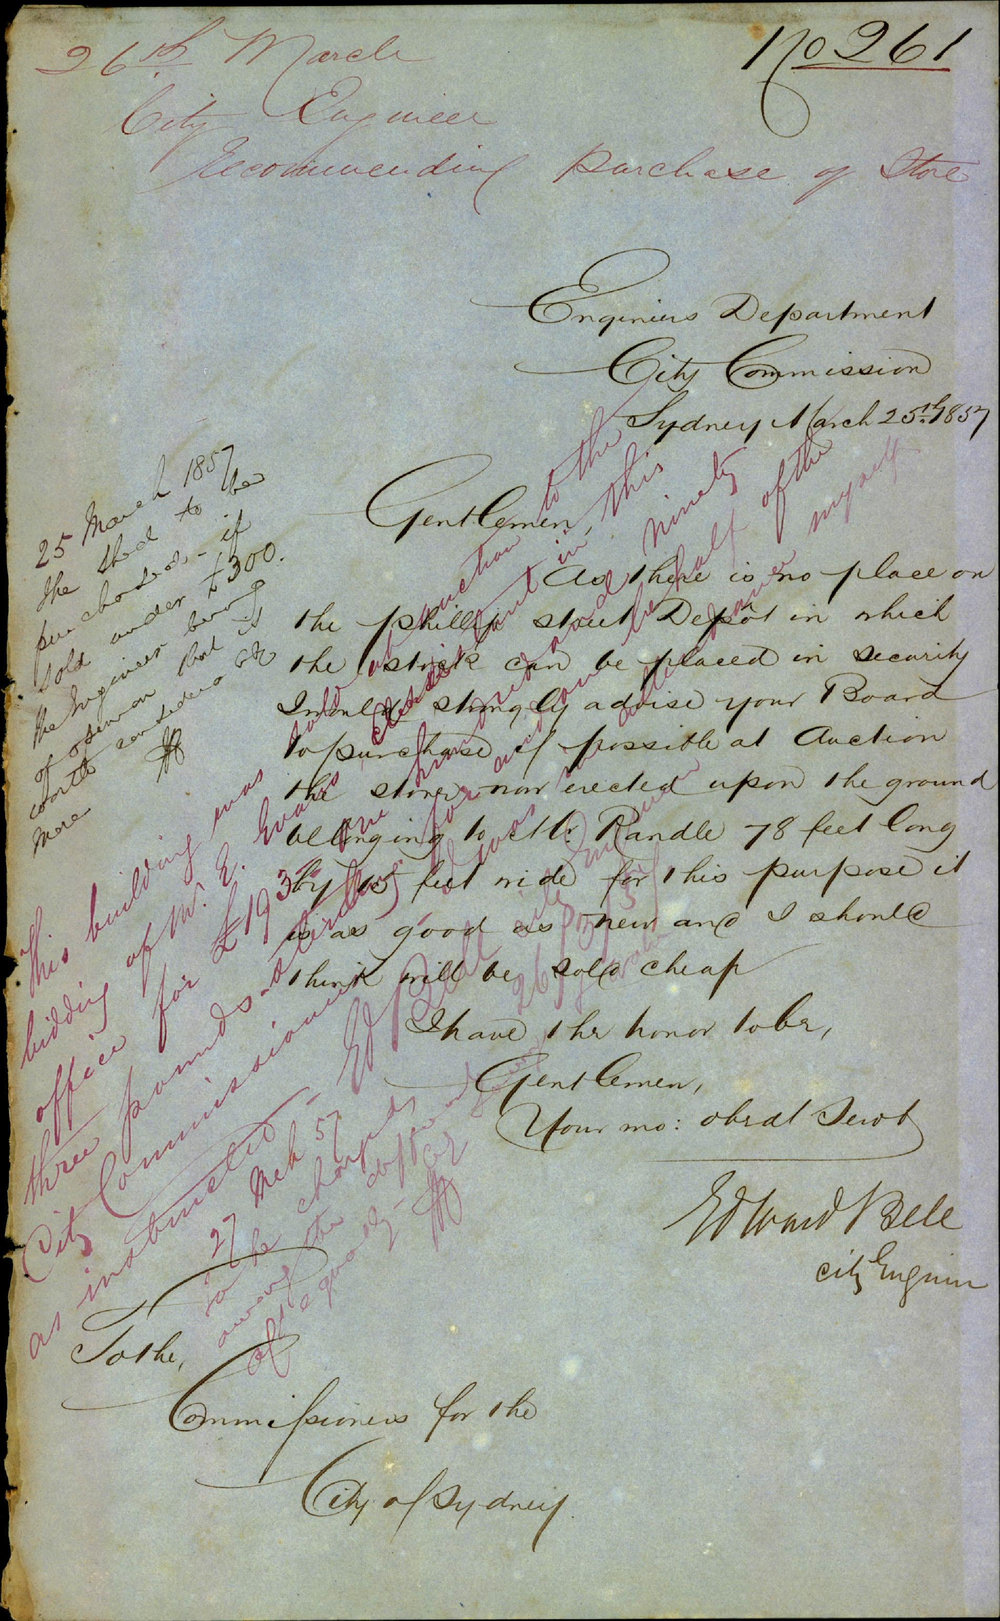 No 261
26th March
City Engineer
Recommending purchase of Store
Enginiers Department
City Commission
Sydney March 25th 1857
Gentlemen,
As there is no place on
the Phillip street Depôt in which
the stock can be placed in security
I would strongly advise your Board
to purchase if possible at Auction
the store now erected upon the ground
bellonging to Mr. Randle 78 feet long
by 15 feet wide for this purpose it
is as good as new and I should
think will be sold cheap
I have the honor to be,
Gentlemen,
Your mo: obedt Servt
Edward Bell
City Engineer
To the,
Commissioners for the
City of Sydney
25 March 1857
the shed to be
purchased, - if
sold under £300.
the Engineer being
of opinion that it is
worth considera ble
more
This building was sold at auction to the
bidding of Mr. E. Evans, clerk in this
office for £193 one hundred and ninety
three pounds sterling for and on behalf of the
City Commissioners I was in attendance myself
as instructed
Ed Bell City Engineer
26/3/57
27 Mch 57
To be charged
over the